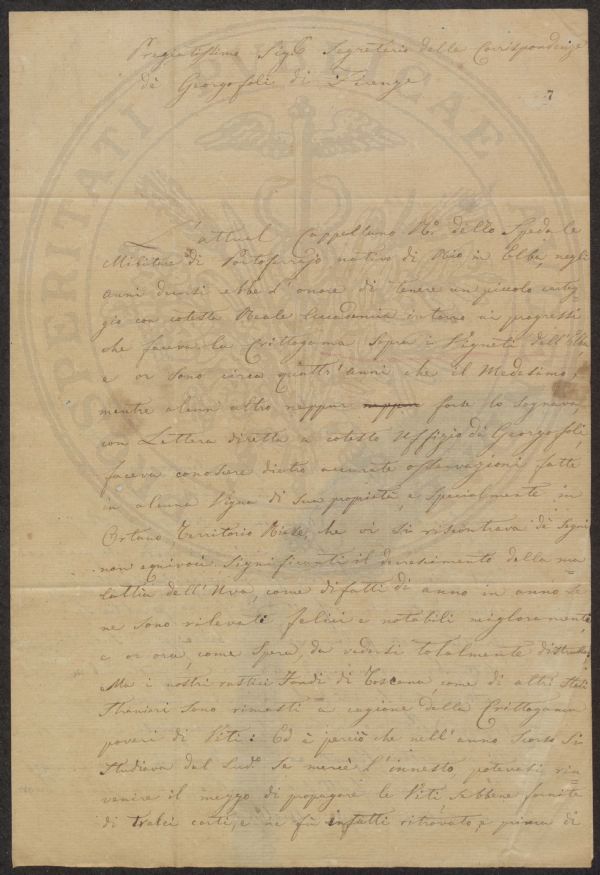 Pregiatissimo Sig.e Segretario delle Corrispondenze
di Georgofoli di Firenze
7
L'attual Cappellano dello Spedale
Militare di Portoferrajo nativo di Rio, in Elba, negli
anni decorsi ebbe l'onore di tenere un piccolo carteg=
gio con cotesta Reale Accademia intorno ai progressi
che faceva la Crittogama sopra i Vigneti dell'Elba
e or sono circa quattr'anni che il Medesimo,
mentre alcun altro neppur neppur forse lo sognava,
con Lettera diretta a cotesto Uffizio di Georgofoli,
faceva conoscere dietro accurate osservazioni fatte
in alcune Vigne di sua proprietà, e specialmente in
Ortano Territorio Riese, che vi si riscontrava di segni
non equivoci significanti il decrescimento della ma=
lattia dell'Uva, come difatti di anno in anno se
ne sono rilevati felici e notabili miglioramenti,
e or ora, come spera, da vedersi totalmente distrutta.
Ma i nostri rustici Fondi di Toscana, come di altri Stati
Stranieri sono rimasti a cagione della Crittogama
poveri di Viti: Ed è perciò che nell'anno scorso si
studiava dal Sud.o se mercè l'innesto, potevasi rin=
venire il mezzo di propagare le Viti, sebbene fornite
di tralci corti, e ne fù infatti ritrovato, e prima di